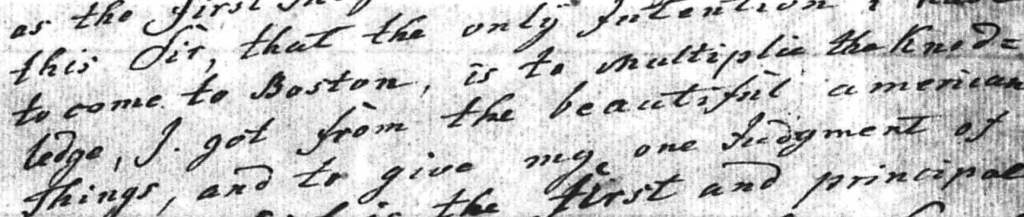 as the first
this Sir, that the only Intention I have
to come to Boston, is to multiplie the Knod=
ledge, I. got from the beautifúl american
things, and to give mge one Judgment of
the first and principal